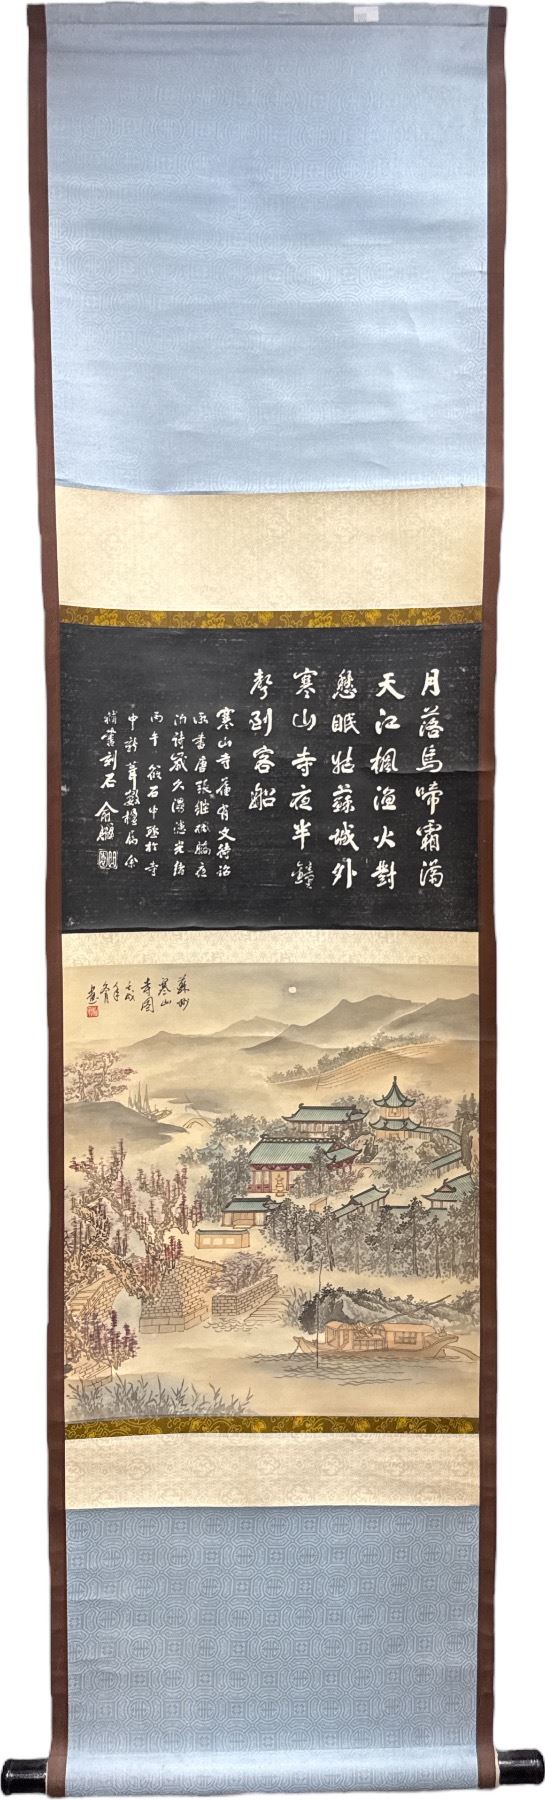 月落烏啼霜滿
天江楓漁火對
愁眠姑蘇城外
寒山寺夜半鐘
聲到客船
寒山寺舊有文待詔
所書唐張繼楓橋夜
泊詩歲久漫漶光緒
丙午筱石中丞於寺
中新葺數楹屬余
補書刻石 俞樾
蘇州
寒山
寺圖
壬戌
冬月